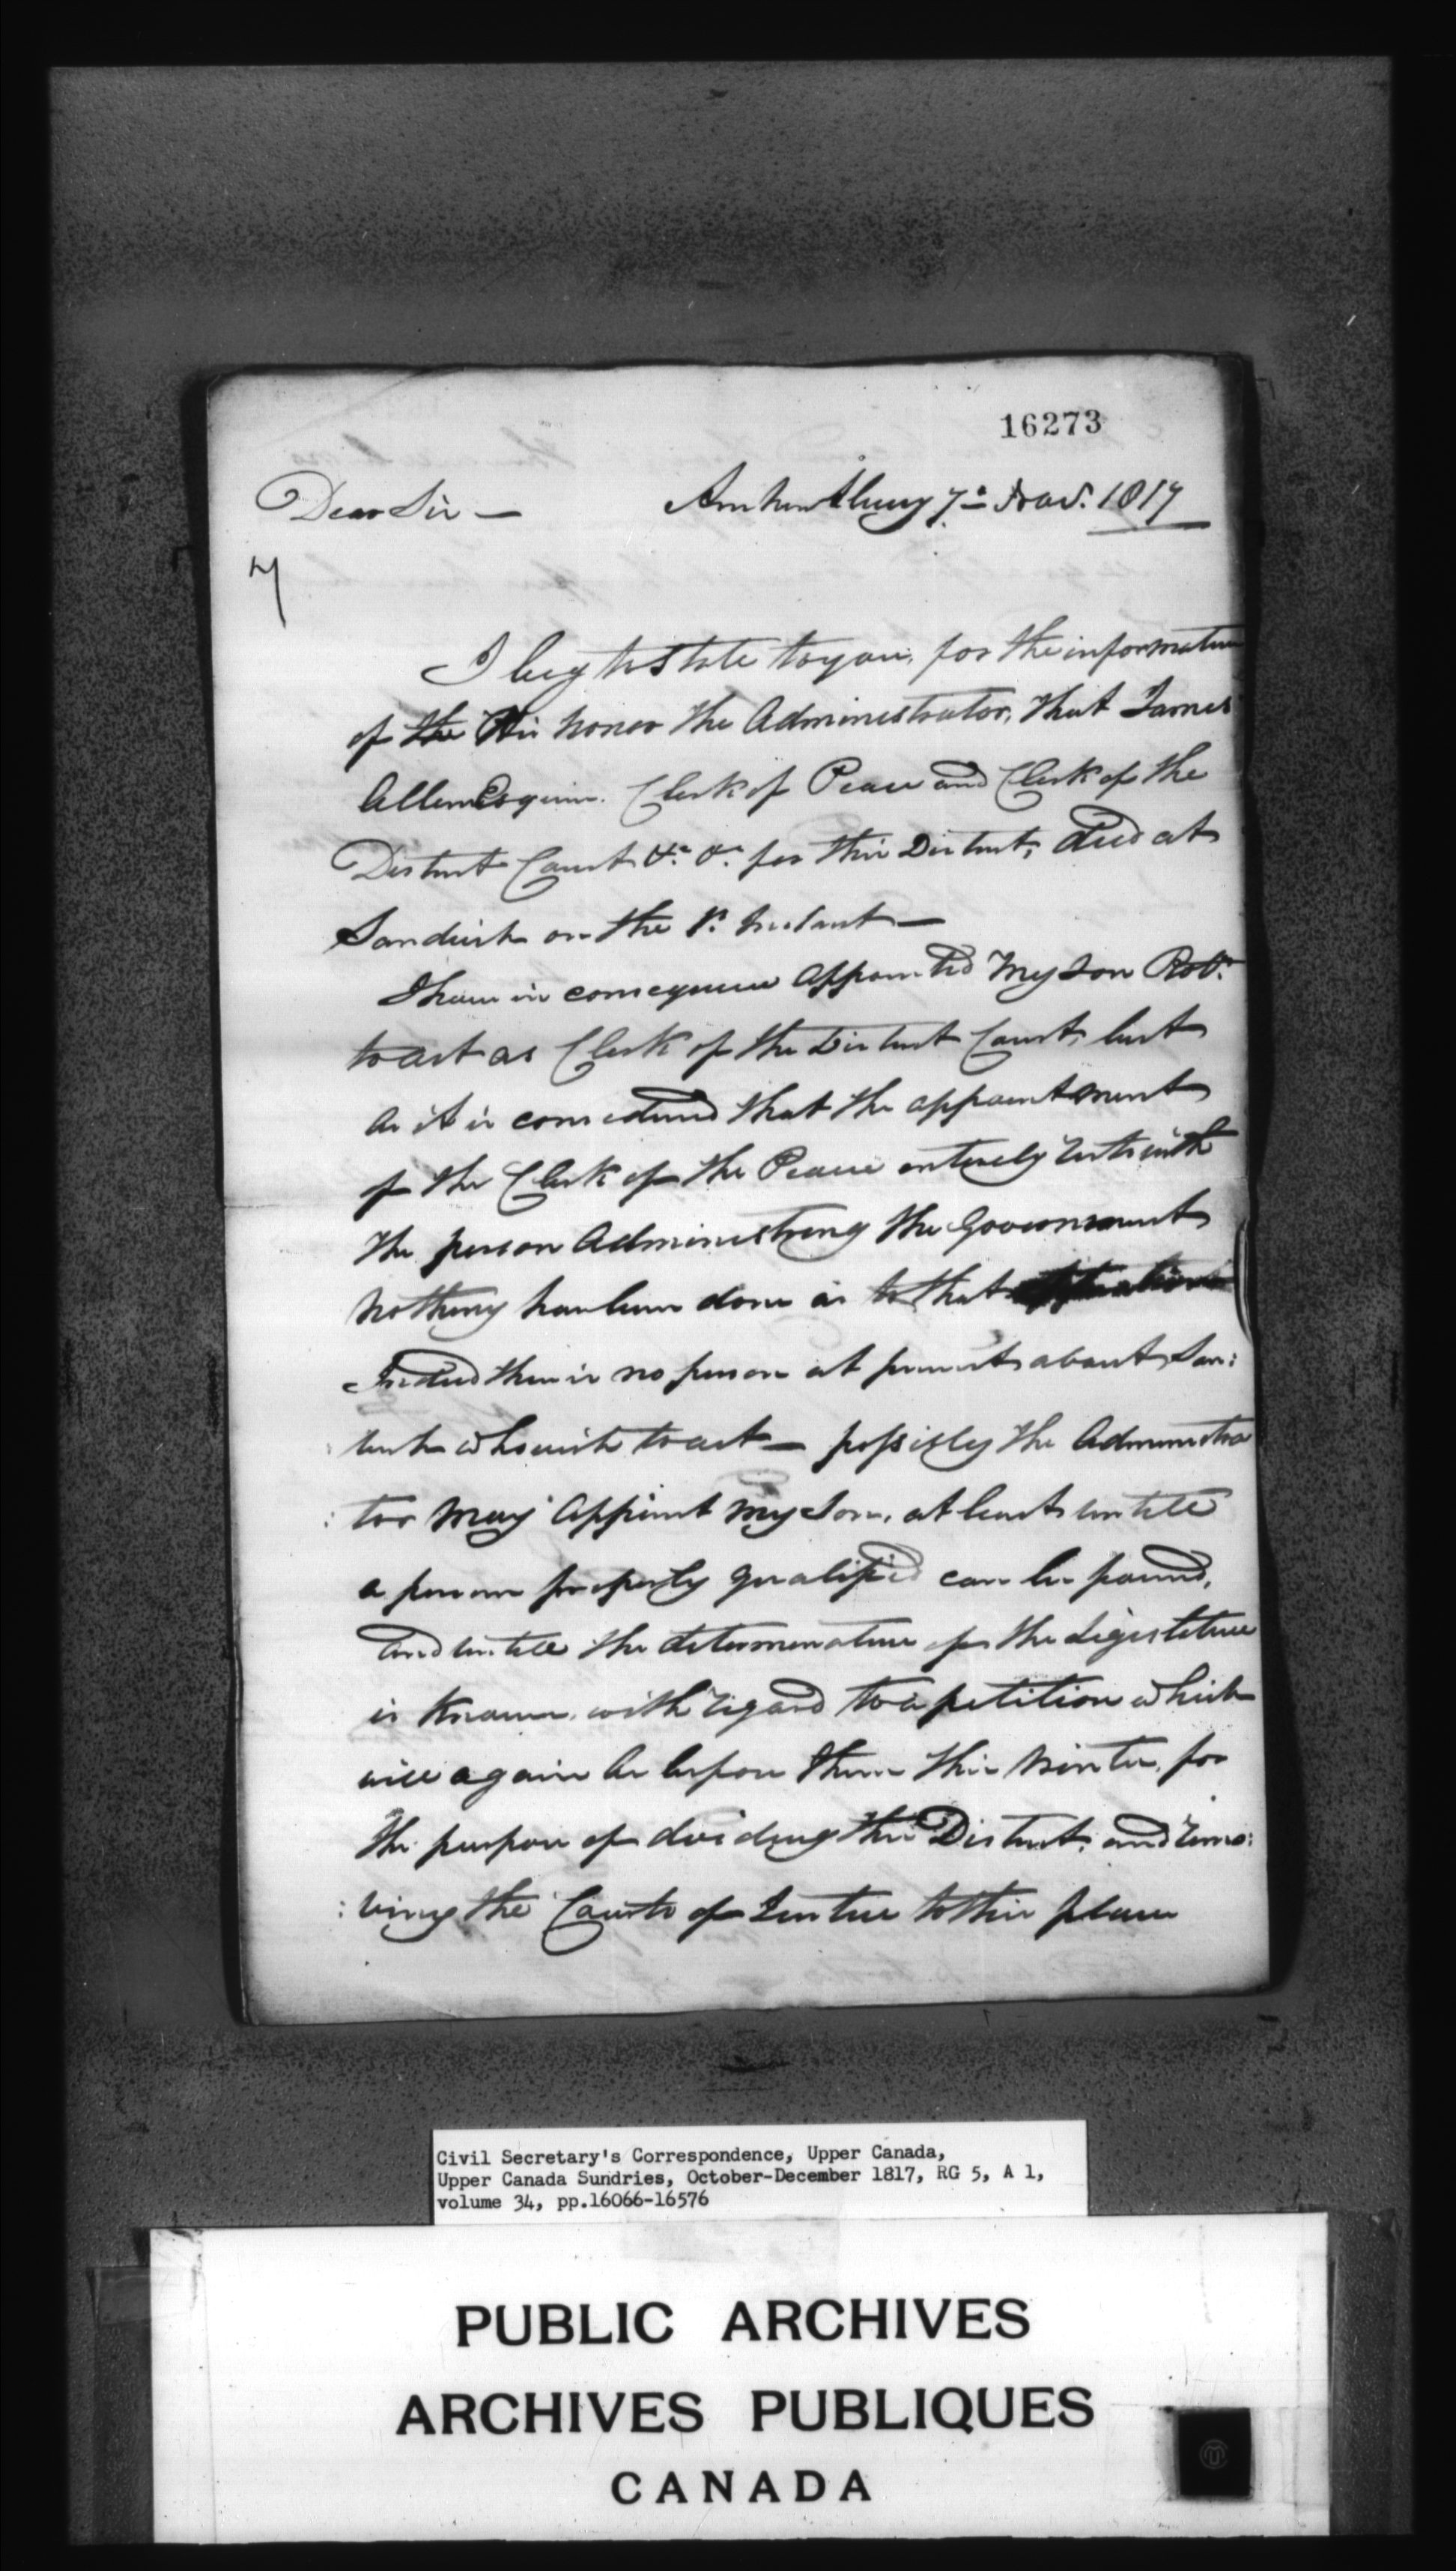 16273
Dear Sir — Amherstburg 7th Nov. 1817
I beg to State to you, for the information
of the His honor the Administrator, that James
Allen Esquire. Clerk of Peace and Clerk of the
District Court &c &c for this District, died at
Sandwich on the 1st Instant —
I have in consequence appointed my Son Robt
to act as Clerk of the District Court, but
as it is considered that the appointment
of the Clerk of the Peace entirely rests with
the person Administring the Government
nothing has been done as to that situation
Indeed there is no person at present about Sand:
wich who wish to act — possibly the Administra
: tor may appoint my Son, at least untill
a person properly qualified can be found,
and untill the determination of the Legislature
is known, with regard to a petition which
will again be before them this Winter, for
the purpose of dividing this District, and remo:
: ving the Courts of Justice to this place
Civil Secretary's Correspondence, Upper Canada,
Upper Canada Sundries, October-December 1817, RG 5, A 1,
volume 34, pp.16066-16576
PUBLIC ARCHIVES
ARCHIVES PUBLIQUES
CANADA